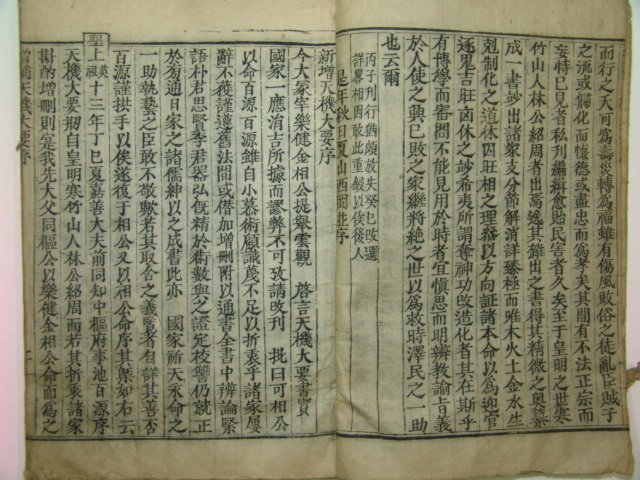 而行之天可為壽災轉為福雖有傷風敗俗之徒亂臣賊子
之流或歸化而懷德或盡忠而為孝矣其間有不法正宗而
妄恃己見者私刊編緝愈貽民害者久矣至于皇明之世寒
竹山人林公紹周者出焉逸其雜出之書得其精微之奧纂
成一書鈔出諸家支分節解消詳臻極而唯木火土金水生
剋制化之道休囚旺相之理發以方向証諸本命以為迎官
逐鬼吉旺凶休之妙希夷所謂奪神功改造化者其在斯乎
有博學而審問不能見用於時者宜慎思而明辨教諭旨義
於人使之興已敗之家繼將絶之世以為救時澤民之一助
也云爾
丙子刊行猶頗放失癸巳改選
詳畧相因敢此重鋟以俟後人
是年秋日夏山西圃並序
新增天機大要序
今大冢宰樂健金相公提舉雲觀 啓言天機大要書實
國家一應消吉所據而謬弊不可致請改刊 批曰可相公
以命百源百源雖自小慕術顧識蔑不足以折衷乎諸家屢
辭不獲謹遵舊法間或偕加增刪附以通書全書中辨論緊
語朴君思賢李君器弘旣精於術數與之證定校讐仍就正
於芴通日家之諸儒紳以之成書此亦 國家祈天永命之
一助執藝之臣敢不敬歟若其取舍之義覽者自詳其善否
百源謹拱手以俟遂復于相公又以相公命序其槩如右云
聖上英祖十三年丁巳夏嘉善大夫前同知中樞府事池百源序
天機大要刱自皇明寒竹山人林公紹周而若其折衷諸家
斟酌增刪則寔我先大父同樞公以樂健金相公命而為之
增補天機大要序